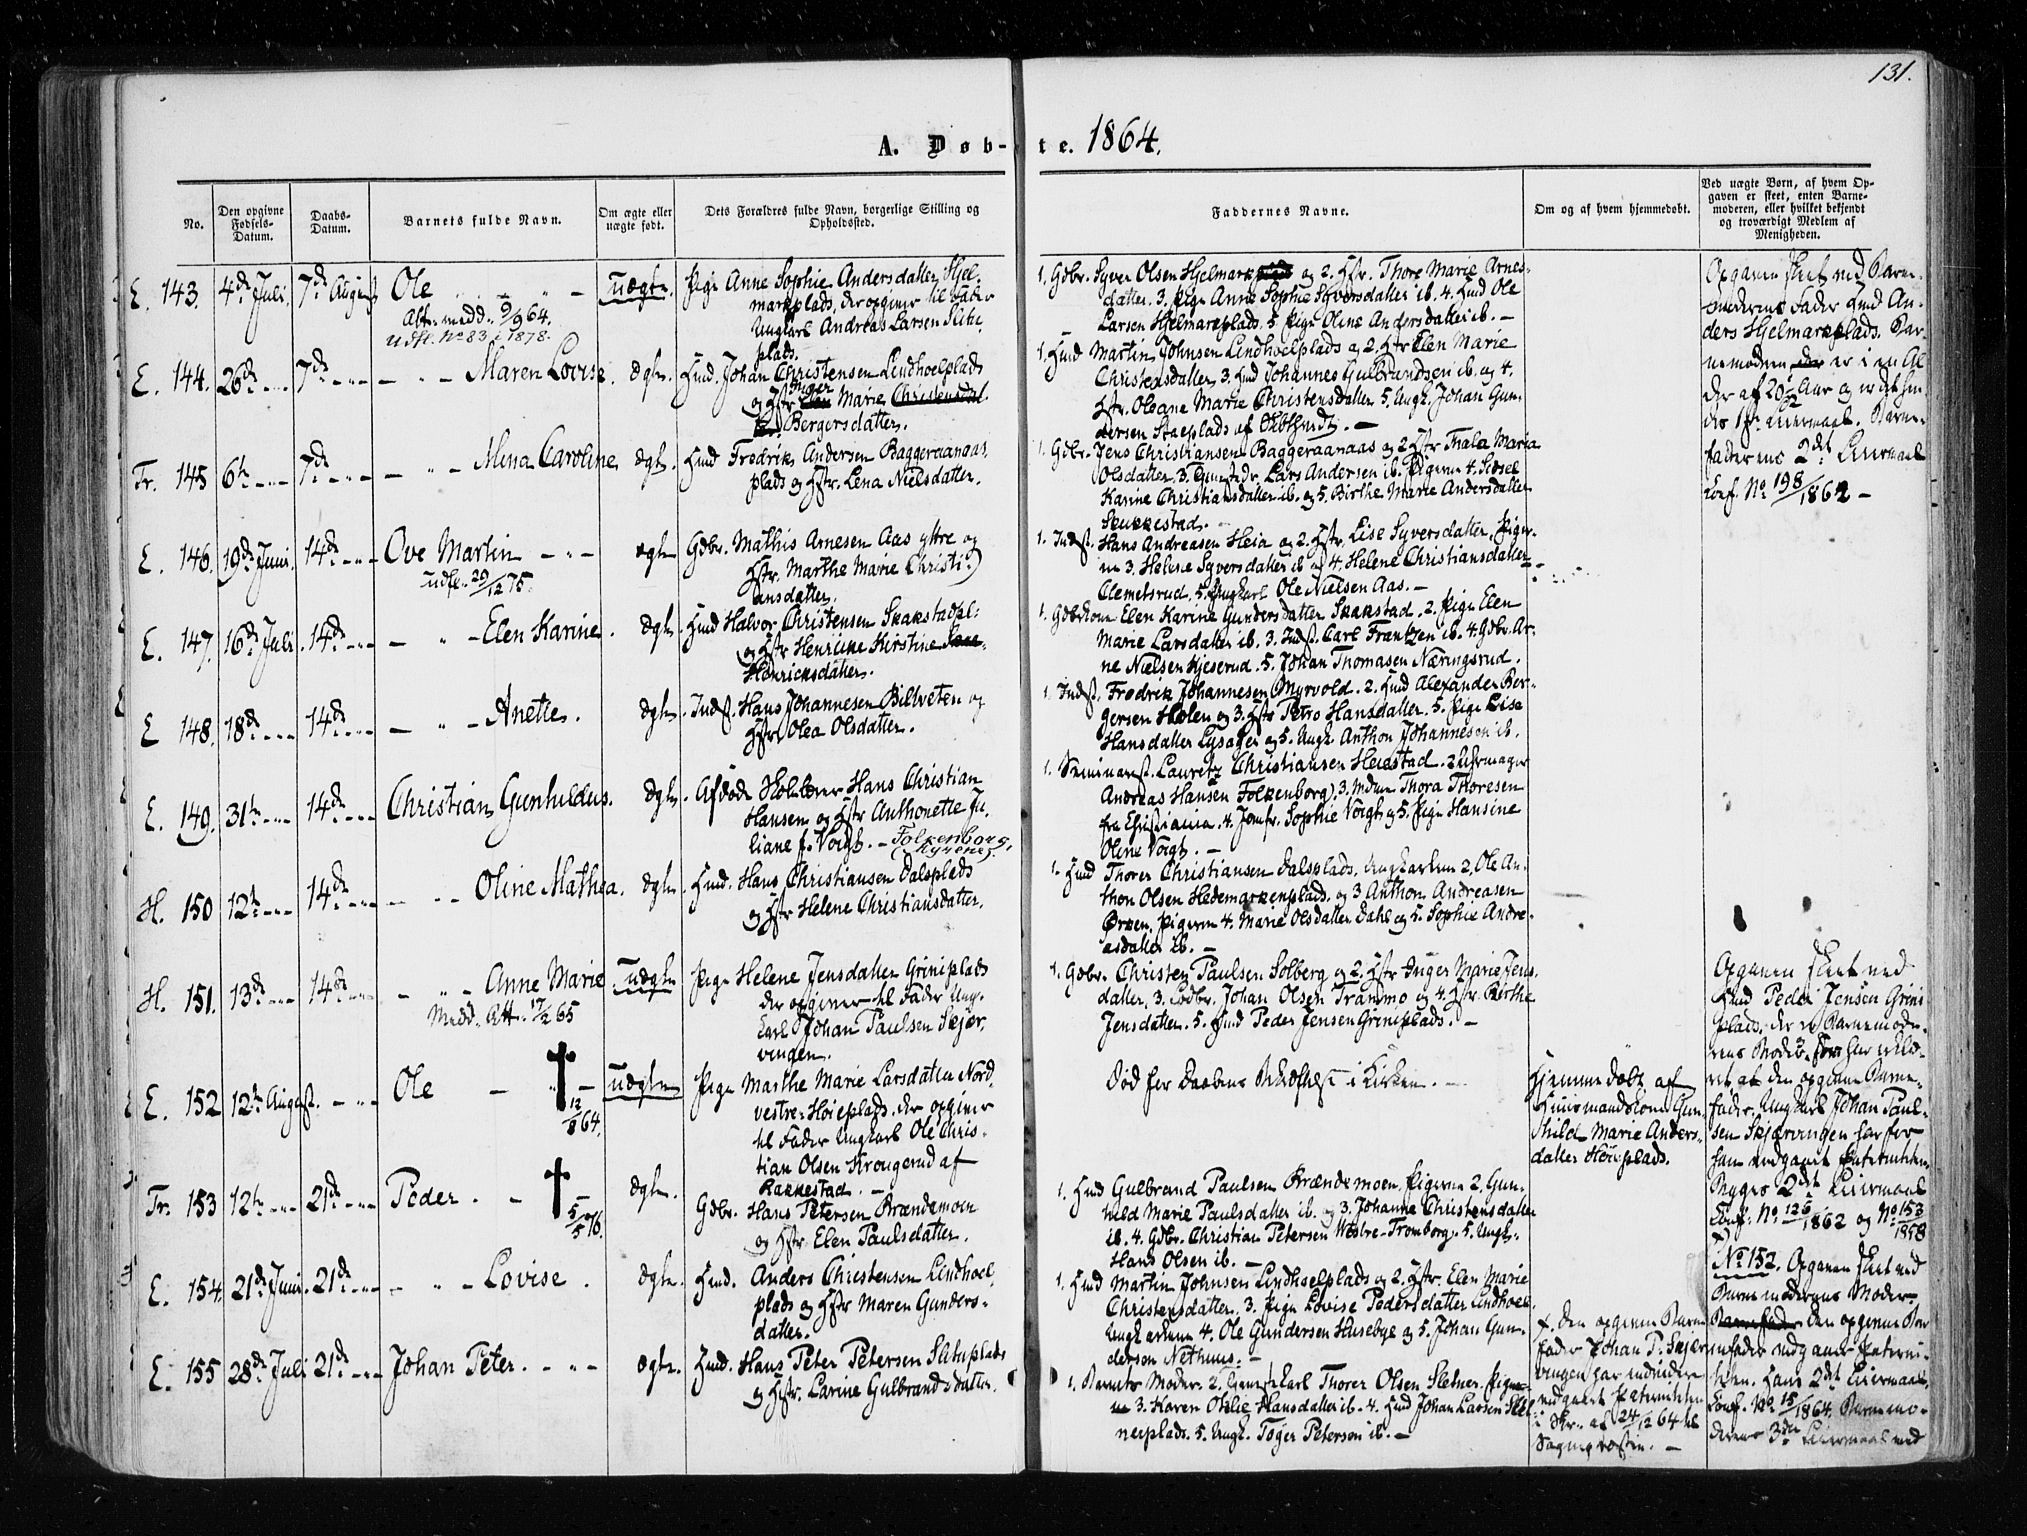 131.
A. Døb-te. 1864.
No.
Den opgivne Fødsels-Datum.
Daabs-Datum.
Barnets fulde Navn.
Om ægte eller uægte født.
Dets Forældres fulde Navn, borgerlige Stilling og Opholdssted.
Faddernes Navne.
Om og af hvem hjemmedøbt.
Ved uægte Børn, af hvem Opgaven er skeet, enten Barnemoderen, eller hvilket bekjendt og troværdigt Medlem af Menigheden.
E. 143. 4de Juli. 7de August Ole uægte.
udfl. No 83, 1878.
Pige Anne Sophie Andersdatter Hjel-
markplads, der opgiver til Fader
Ungkarl Andreas Larsen Slite-
plads.
1. Gdbr. Syver Olsen Hjelmark og 2. Hstr. Thore Marie Arnes-
datter. 3. Pige Anne Sophie Syversdatter ib. 4. Hmd Ole
Larsen Hjelmarkplads. 5. Pige Oline Andersdatter ib. –
Opgaven skeet ved Barne-
moderens Fader Hmd An-
ders Hjelmarkplads. Bar-
nemoderen er i en Al-
der af 20½ Aar og er det hen-
des 1ste Leiermaal. Barne-
faderens 2det Leiermaal
Conf. No 198/1862 –
E. 144. 26de 7de Maren Lovise. ægte.
Hmd. Johan Christensen Lindhoelplads
og Hstr. Inger Marie
Bergersdatter.
1. Hmd Martin Johnsen Lindhoelplads og 2. Hstr Elen Marie
Christensdatter. 3. Hmd Johannes Gulbrandsen ib. og 4.
Hstr. Oleane Marie Christensdatter. 5. Ungk. Johan Gun-
dersen
Fr. 145 6te 7de Mina Caroline ægte.
Hmd Fredrik Andersen Baggeraanaas
plads og Hstr. Lena Nielsdatter.
1. Gdbr. Jens Christiansen Baggeraanaas og 2 Hstr Thala Maria
Olsdatter. 3. Lars Andersen ib. Pigerne 4. Sidsel
Karine Christiansdatter ib. og 5. Birthe Marie Andersdatter
Skukkestad.
E. 146. 19de Juni. 14de Ove Martin ægte
udfl. 29/12 75.
Gdbr. Mathis Arnesen Aas ytre og
Hstr. Marthe Marie Christi-
ansdatter.
1. Indst. Hans Andreasen Heia og 2. Hstr. Lise Syversdatter. Piger-
ne 3. Helene Syversdatter ib og 4. Helene Christiansdatter
Clemetsrud. 5. Ungkarl Ole Nielsen Aas. –
E. 147. 16de Juli 14de Elen Karine. ægte.
Hmd Halvor Christensen Skakstadpl:
og Hstr Henrikke Kirstine
Henricksdatter.
1. Gdbrkone Elen Karine Gundersdatter Skakstad. 2. Pige Elen
Marie Larsdatter ib. 3. Indst. Carl Frantzen ib. 4. Gdbr. Ar-
ne Nielsen Kjeserud. 5. Johan Thomasen Næringsrud.
E 148. 18de 14de Anette. ægte.
Indst. Hans Johannesen Biltveten og
Hstr Olea Olsdatter.
1. Indst. Fredrik Johannesen Myrvold. 2. Hmd Alexander Ber-
gersen Holen og 3. Hstr Petro Hansdatter. 5. Pige Lise
Hansdatter Lysager og 5. Ungk. Anthon Johannesen ib.
E. 149. 31te 14de Christian Gunhildus. ægte.
Afdøde Skolelærer Hans Christian
Hansen og Hstr Anthonette Ju-
liane f. Voigt. – Folkenborg,
1. Seminarist. Lauretz Christiansen Henstad. 2 Uhrmager
Andreas Hansen Folkenborg. 3. Mdme Thora Thoresen
fra Christiania. 4. Jomfr. Sophie Voigt og 5. Pige Hansine
Oline Voigt. –
H. 150 12te 14de Oline Mathea. ægte.
Hmd. Hans Christiansen Dalsplads
og Hstr Helene Christiansdatter.
1. Hmd Thorer Christiansen Dalsplads. Ungkarlene 2. Ole An-
thon Olsen Hedemarkenplads. og 3 Anthon Andreasen
Ørken. Pigerne 4. Marie Olsdatter Dahl og 5. Sophie Andre-
asdatter ib. –
H. 151. 13de 14de Anne Marie uægte
Medd. Att. 17/2 65
Pige Helene Jensdatter Griniplads
der opgiver til Fader Ung-
karl Johan Paulsen Skjær-
vingen.
1. Gdbr. Christen Paulsen Solberg og 2. Hstr Inger Marie Jens-
datter. 3. Lodbr. Johan Olsen Trammo og 4. Hstr. Birthe
Jensdatter. 5. Hmd Peder Jensen Griniplads. –
Opgaven skeet ved
Hmd Peder Jensen Grini
plads, der er Barnemode-
rens Broder.
ret at den opgivne Barne-
fader, Ungkarl Johan Paul-
sen Skjærvingen har for
ham vedgaaet Paterniteten.
2det Leiermaal
Conf. No 126/1862 og No 153/1858
E. 152 12te August. Ole † 12/8 64. uægte
Pige Marthe Marie Larsdatter Nord-
vestre-Høieplads. der opgiver
til Fader Ungkarl Ole Chris-
tian Olsen Krougerud af
Rakkestad. –
Død før Daabens Bekræftelse i Kirken. –
Hjemmedøbt af
Huusmandskone Gun-
hild Marie Anders-
datter Høieplads.
Fr. 153 12te 21de Peder. † 5/5 76. ægte.
Gdbr. Hans Petersen Brændemoen
og Hstr Elen Paulsdatter.
1. Hmd Gulbrand Paulsen Brændemoen. Pigerne 2. Gun-
hild Marie Paulsdatter ib. og 3. Johanne Christensdatter
ib. 4. Gdbr. Christian Petersen Westre-Tromborg. 5. Ungk.
Hans Olsen ib. –
No 152. Opgaven skeet ved
Barnemoderens Moder.
den opgivne Bar
nefader vedgaaer Paterni-
teten. Hans 2det Leiermaal.
Conf. No 15/1864. Barnemo-
derens 3die Leiermaal ved
E. 154. 21de Juni. 21de Lovise. ægte.
Hmd. Anders Christensen Lindhoel-
plads og Hstr Maren Gunders-
datter.
1. Hmd Martin Johnsen Lindhoelplads og 2. Hstr. Elen Marie
Christensdatter. 3. Pige Lovise Pedersdatter Lindhoel
Ungkarlene 4. Ole Gundersen Husebye og 5. Johan Gun-
dersen Nethuus. –
Den opgivne Barne
fader Johan P. Skjær-
vingen har
vedgaaet Paterniteten
i Skr. af 24/12 64 til
Sognepræsten. –
E. 155 28de Juli 21de Johan Peter. ægte.
Hmd. Hans Peter Petersen Sliteplads
og Hstr. Larine Gulbrandsdatter.
1. Barnets Moder. 2. Thorer Olsen Sletner. Piger-
ne 3. Karen Otilie Hansdatter ib. 4. Hmd Johan Larsen Slet-
nerplads. 5. Ungk. Tøger Petersen ib. –